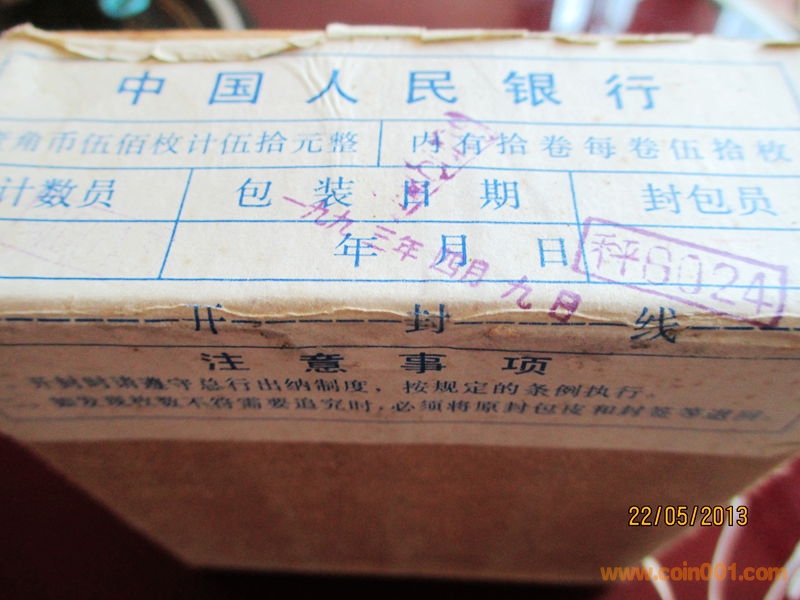 中国人民银行
壹角币伍佰枚计伍拾元整 内有拾卷每卷伍拾枚
计数员 包装日期 封包员
年 月 日
一九九三年四月九日
秤8024
开封线
注意事项
开封时请遵守总行出纳制度，按规定的条例执行。
如发现枚数不符需要追究时，必须将原封包皮和封签等退回
22/05/2013
www.coin001.com